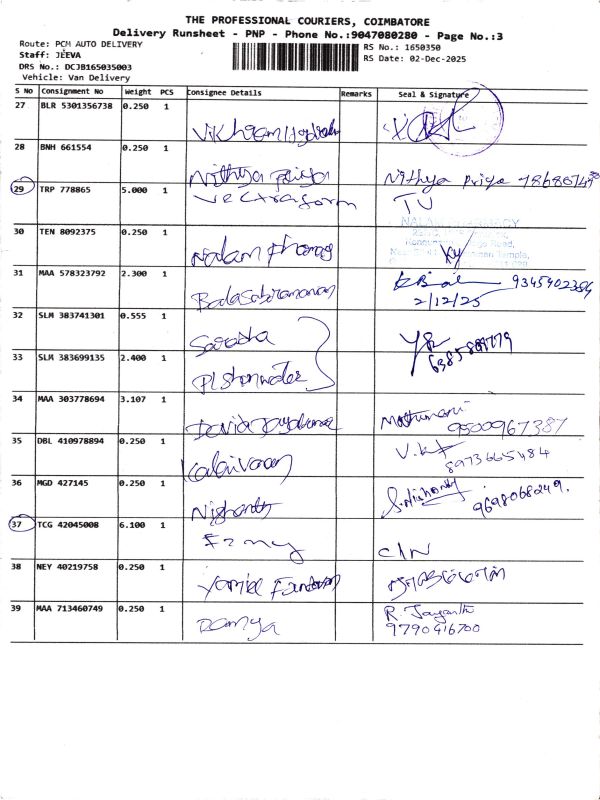 THE PROFESSIONAL COURIERS, COIMBATORE
Delivery Runsheet - PNP - Phone No.:9047080280 - Page No.:3
Route: PCM AUTO DELIVERY
RS No.: 1650350
Staff: JEEVA
RS Date: 02-Dec-2025
DRS No.: DCJB165035003
Vehicle: Van Delivery
S No Consignment No Weight PCS Consignee Details Remarks Seal & Signature
27 BLR 5301356738 0.250 1
28 BNH 661554 0.250 1
Nithya Priya Nithya Priya
29 TRP 778865 5.000 1
Vectraform TV
30 TEN 8092375 0.250 1
Nalam
31 MAA 578323792 2.300 1
Badasabramanan 9345902384
2/12/25
32 SLM 383741301 0.555 1
33 SLM 383699135 2.400 1
34 MAA 303778694 3.107 1
9500967387
35 DBL 410978894 0.250 1
Kalaivanan 8973665484
36 MGD 427145 0.250 1
Nishanth 9698068249.
37 TCG 42045008 6.100 1
38 NEY 40219758 0.250 1
39 MAA 713460749 0.250 1
Ramya R. Jayanthi
9790416700